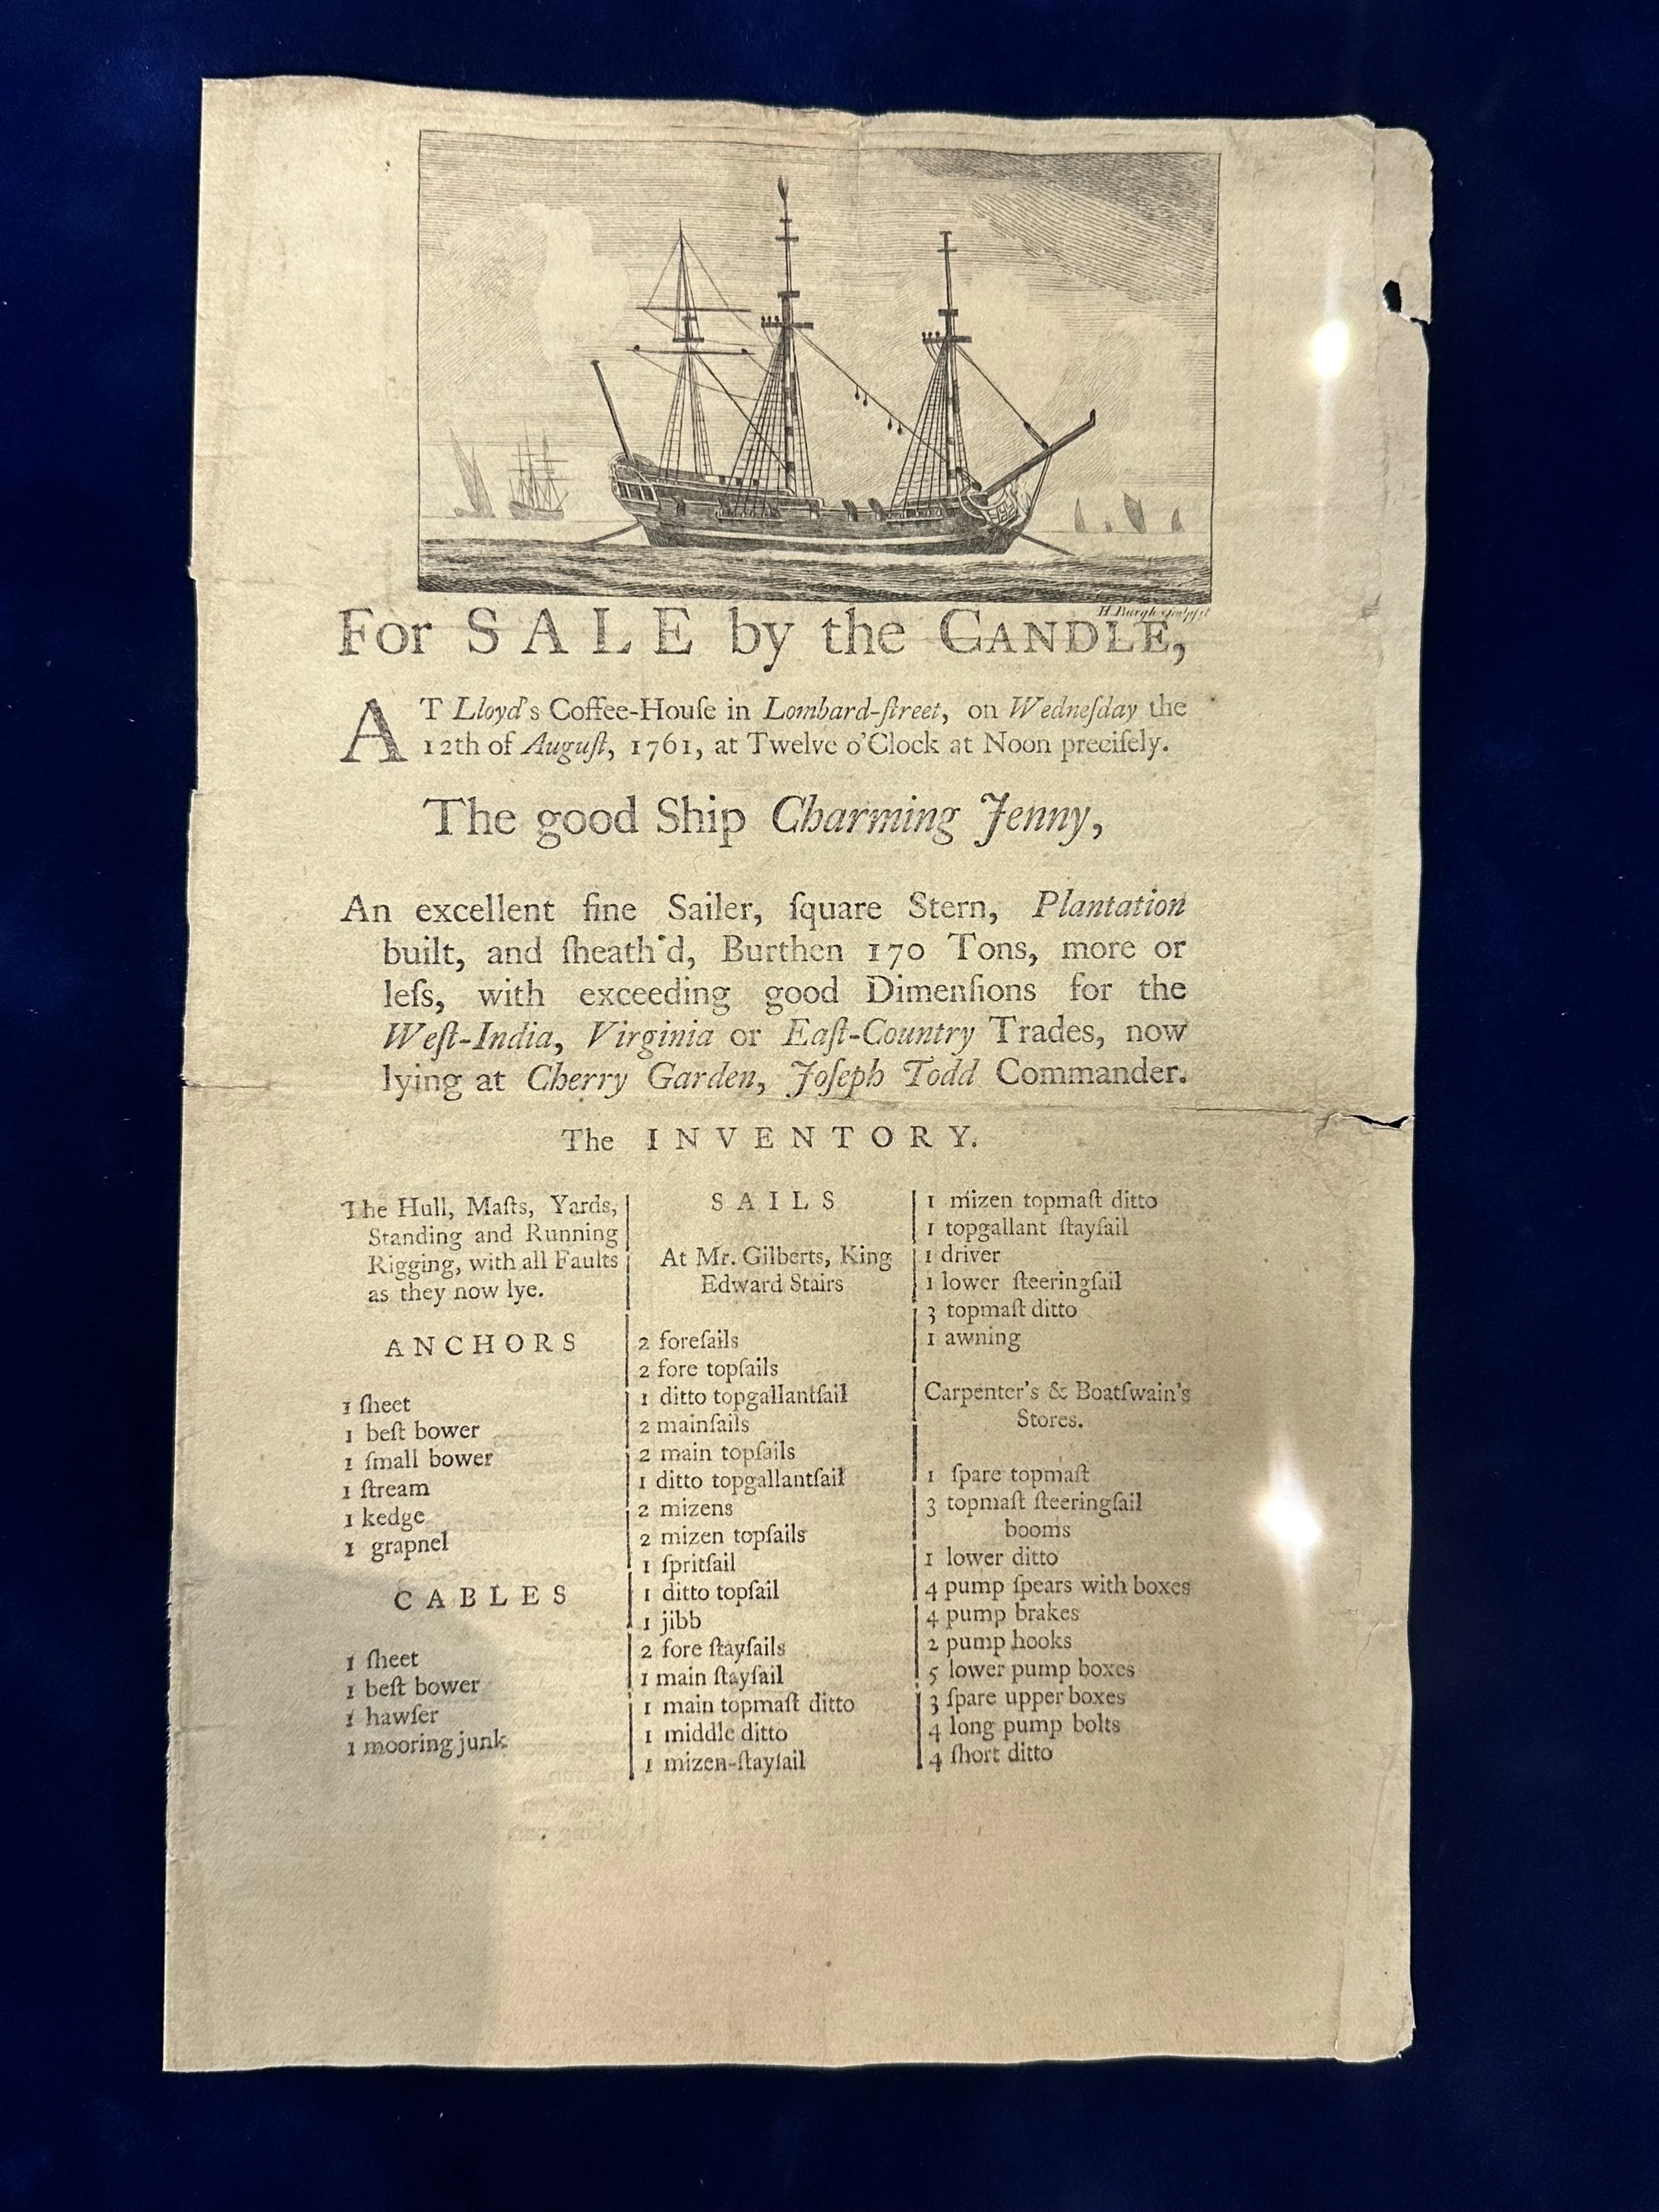 H. Burgh sculpsit
For SALE by the CANDLE,
AT Lloyd's Coffee-Houſe in Lombard-ſtreet, on Wedneſday the
12th of Auguſt, 1761, at Twelve o'Clock at Noon preciſely.
The good Ship Charming Jenny,
An excellent fine Sailer, ſquare Stern, Plantation
built, and ſheath'd, Burthen 170 Tons, more or
leſs, with exceeding good Dimenſions for the
Weſt-India, Virginia or Eaſt-Country Trades, now
lying at Cherry Garden, Joſeph Todd Commander.
The INVENTORY.
The Hull, Maſts, Yards,
Standing and Running
Rigging, with all Faults
as they now lye.
ANCHORS
1 ſheet
1 beſt bower
1 ſmall bower
1 ſtream
1 kedge
1 grapnel
CABLES
1 ſheet
1 beſt bower
1 hawſer
1 mooring junk
SAILS
At Mr. Gilberts, King
Edward Stairs
2 foreſails
2 fore topſails
1 ditto topgallantſail
2 mainſails
2 main topſails
1 ditto topgallantſail
2 mizens
2 mizen topſails
1 ſpritſail
1 ditto topſail
1 jibb
2 fore ſtayſails
1 main ſtayſail
1 main topmaſt ditto
1 middle ditto
1 mizen-ſtayſail
1 mizen topmaſt ditto
1 topgallant ſtayſail
1 driver
1 lower ſteeringſail
3 topmaſt ditto
1 awning
Carpenter's & Boatſwain's
Stores.
1 ſpare topmaſt
3 topmaſt ſteeringſail
booms
1 lower ditto
4 pump ſpears with boxes
4 pump brakes
2 pump hooks
5 lower pump boxes
3 ſpare upper boxes
4 long pump bolts
4 ſhort ditto